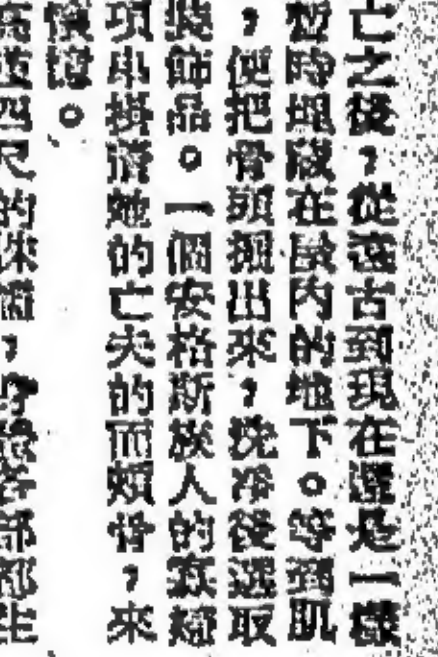 亡之後，從遠古到現在還是一樣
暫時埋藏在島內的地下。等到肌
，便把骨頭掘出來，洗淨後選取
裝飾品。一個安格斯族人的寡婦
項串掛着她的亡夫的面頰骨，來
懷證。
高四尺的体 ，身 各部都生